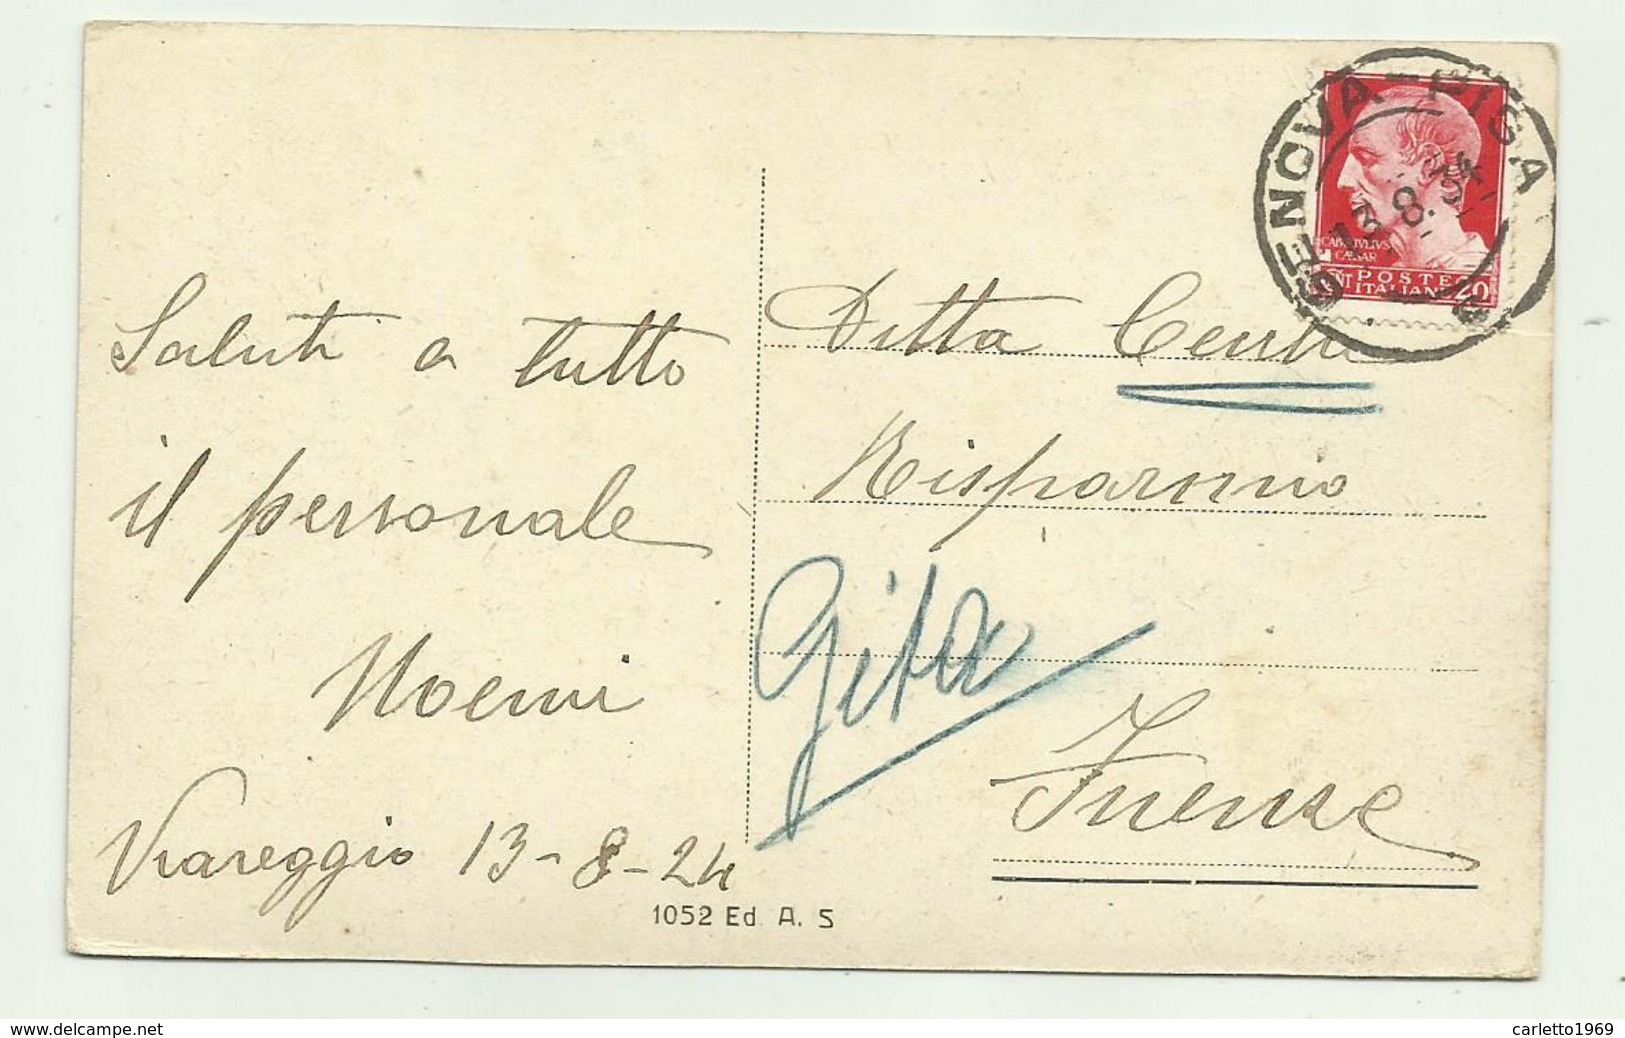 Saluti a tutto
il personale
Noemi
Viareggio 13-8-24
1052 Ed. A. S
Ditta
Risparmio
Gita
Firenze
GENOVA-PISA
13.8.
CAIVS IVLIVS
CÆSAR
CENT POSTE
ITALIANE 20
www.delcampe.net
carletto1969